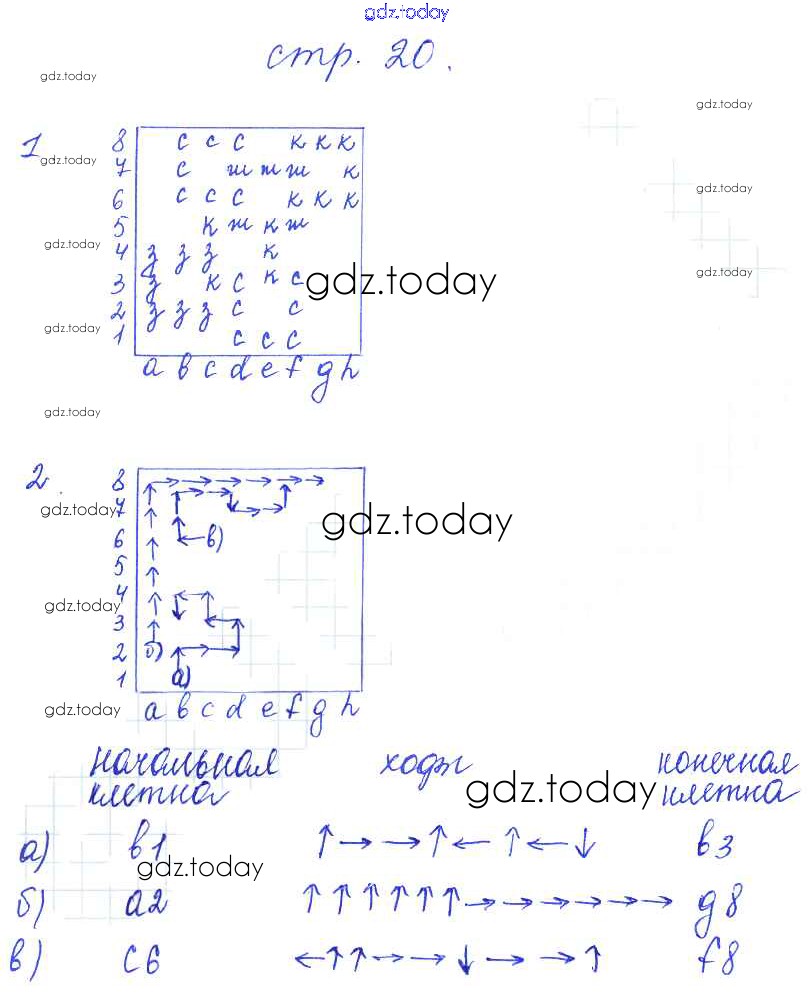 gdz.today
стр. 20.
gdz.today
gdz.today
1
8 с с с к к к
gdz.today
7 с ж ж ж к
6 с с с к к к
gdz.today
5 к ж к ж
gdz.today
4 з з з к
3 з к с к с
gdz.today
gdz.today
2 з з з с с
gdz.today
1 с с с
a b c d e f g h
gdz.today
2.
8 ↑ → → → → → →
7
gdz.today
gdz.today
6 ← в)
5
4
gdz.today
3
2 б)
1 а)
gdz.today
a b c d e f g h
начальная клетка ходы конечная клетка
gdz.today
а) b1 ↑ → → ↑ ← ↑ ← ↓ b3
gdz.today
б) a2 ↑ ↑ ↑ ↑ ↑ ↑ → → → → → → g8
в) c6 ← ↑ ↑ → → ↓ → → ↑ f8